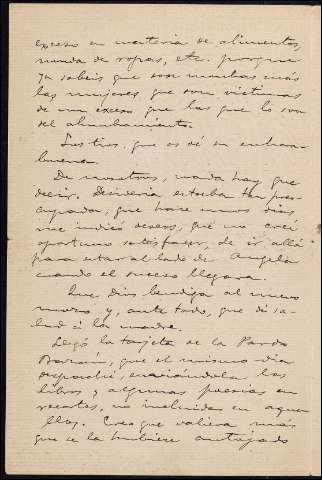 exceso en materia de alimentos,
muda de ropas, etc. porque
ya sabeis que son muchas más
las mujeres, que son víctimas
de un exceso que las que lo son
del alumbramiento.
Sus tios, que os dé en enhora-
buena.
De nosotros, nada hay que
decir. Desideria estaba tan preo-
cupada, que hace unos dias
me indicó deseos, que no creí
oportuno satisfacer, de ir allá
para estar al lado de Angela
cuando el suceso llegara.
Que Dios bendiga al nuevo
y, ante todo, que dé sa-
lud á la madre.
Llegó la tarjeta de la Pardo
Bazán, que el mismo dia
despaché, enviándola los
libros y algunas poesias en
recortes, no incluidas en aque-
llos. Creo que valiera más
que se la hubiere antojado